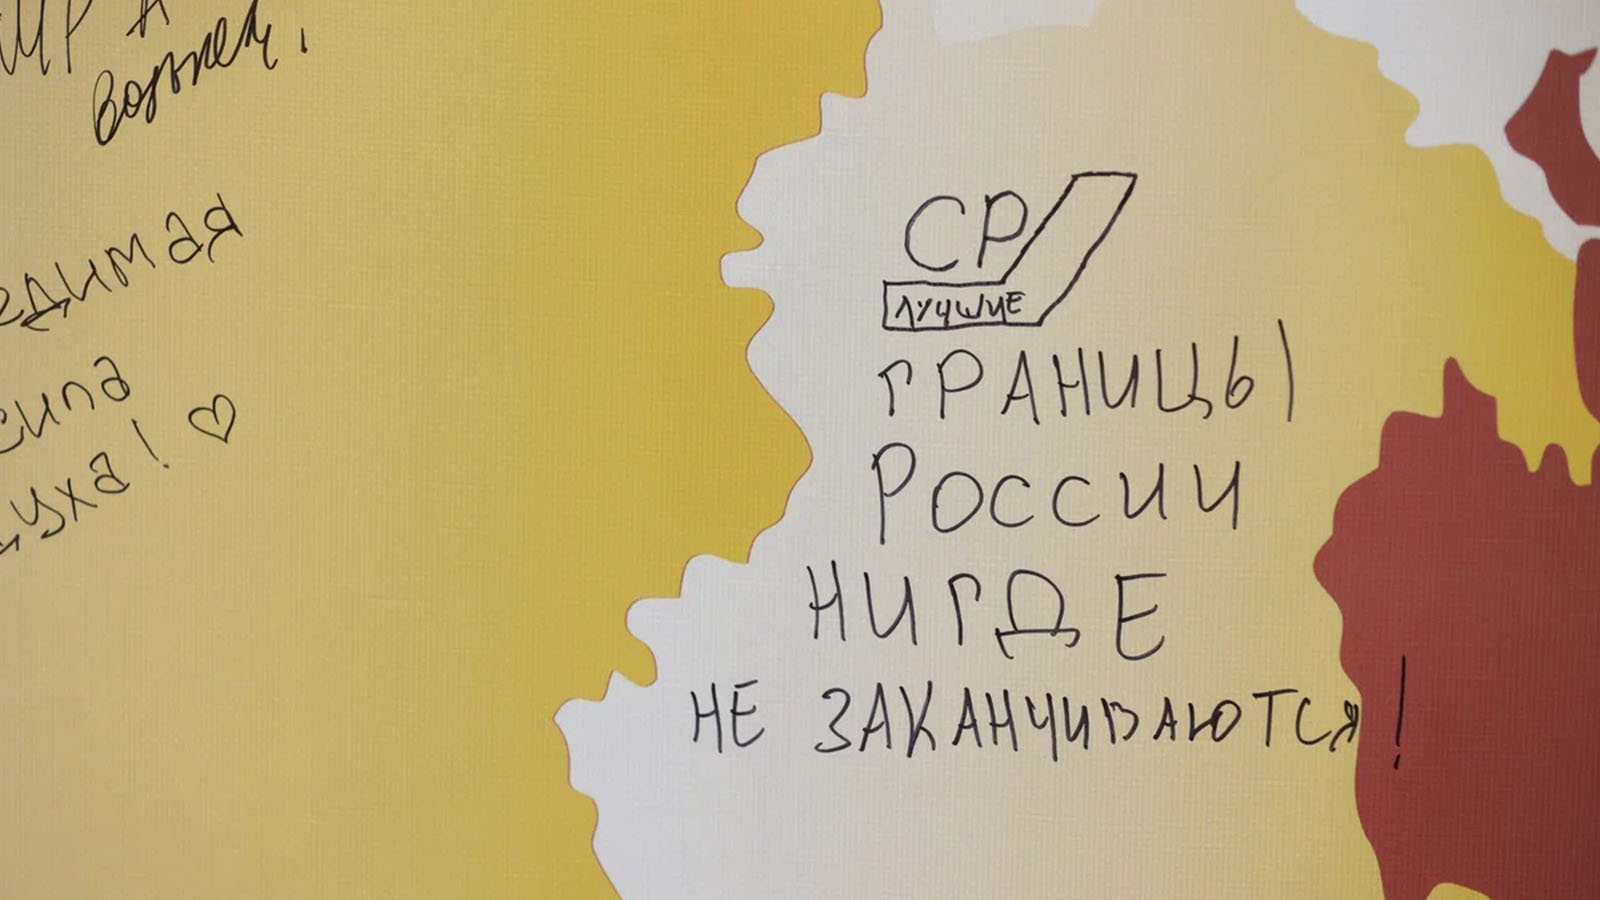 СР
ЛУЧШИЕ
ГРАНИЦЫ
РОССИИ
НИГДЕ
НЕ ЗАКАНЧИВАЮТСЯ!
едимая
сила
духа!